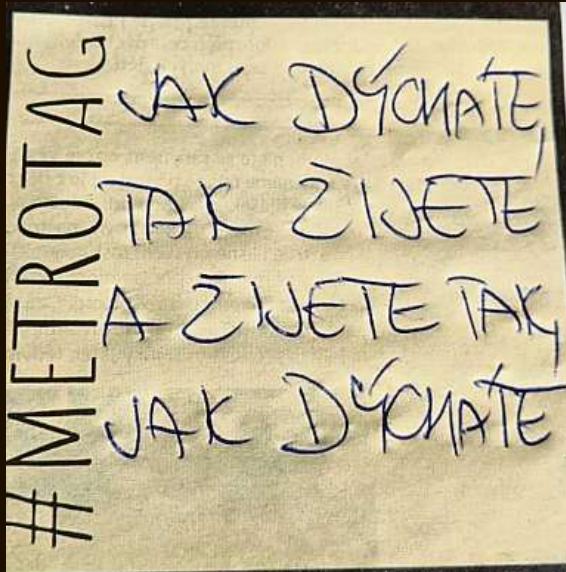 #METROTAG
JAK DÝCHÁTE,
TAK ŽIJETE
A ŽIJETE TAK,
JAK DÝCHÁTE